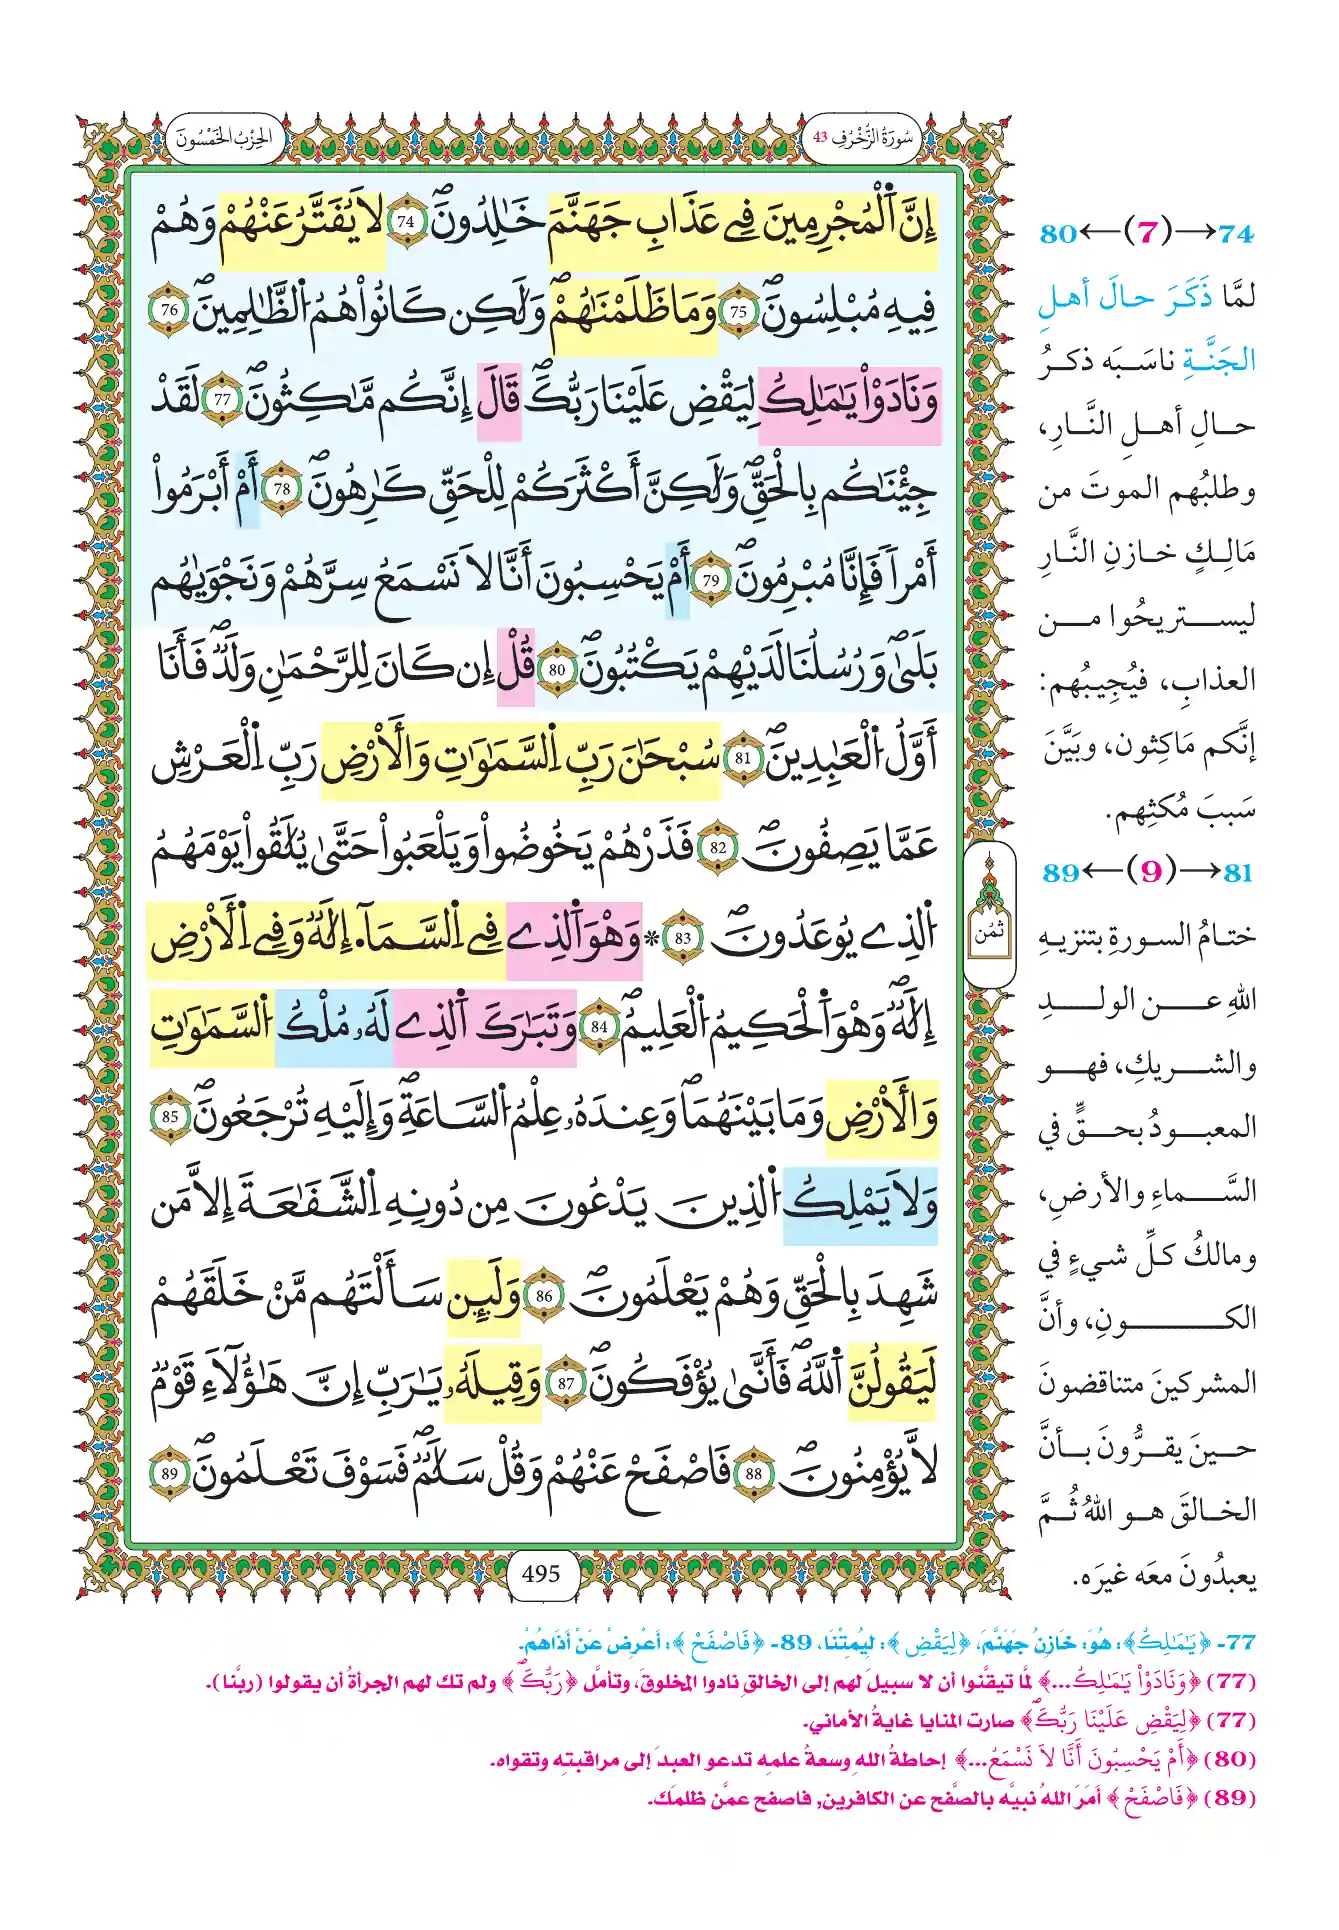 سُورَةُ الزُّخْرُفِ 43
الحِزْبُ الخَمْسُونَ
إِنَّ اَ۬لْمُجْرِمِينَ فِے عَذَابِ جَهَنَّمَ خَٰلِدُونَۖ 74 لَا يُفَتَّرُ عَنْهُمْ وَهُمْ
فِيهِ مُبْلِسُونَۖ 75 وَمَا ظَلَمْنَٰهُمْۖ وَلَٰكِن كَانُواْ هُمُ اُ۬لظَّٰلِمِينَۖ 76
وَنَادَوْاْ يَٰمَٰلِكُ لِيَقْضِ عَلَيْنَا رَبُّكَۖ قَالَ إِنَّكُم مَّٰكِثُونَۖ 77 لَقَدْ
جِئْنَٰكُم بِالْحَقِّۖ وَلَٰكِنَّ أَكْثَرَكُمْ لِلْحَقِّ كَٰرِهُونَۖ 78 أَمْ أَبْرَمُواْ
أَمْراٗ فَإِنَّا مُبْرِمُونَۖ 79 أَمْ يَحْسِبُونَ أَنَّا لَا نَسْمَعُ سِرَّهُمْ وَنَجْوَيٰهُم
بَلَىٰۖ وَرُسُلُنَا لَدَيْهِمْ يَكْتُبُونَۖ 80 قُلْ إِن كَانَ لِلرَّحْمَٰنِ وَلَدٞۖ فَأَنَا
أَوَّلُ اُ۬لْعَٰبِدِينَۖ 81 سُبْحَٰنَ رَبِّ اِ۬لسَّمَٰوَٰتِ وَالْأَرْضِ رَبِّ اِ۬لْعَرْشِ
عَمَّا يَصِفُونَۖ 82 فَذَرْهُمْ يَخُوضُواْ وَيَلْعَبُواْ حَتَّىٰ يُلَٰقُواْ يَوْمَهُمُ
اُ۬لذِے يُوعَدُونَۖ 83 * وَهْوَ اَ۬لذِے فِے اِ۬لسَّمَآءِ إِلَٰهٞ وَفِے اِ۬لْأَرْضِ
إِلَٰهٞۖ وَهْوَ اَ۬لْحَكِيمُ اُ۬لْعَلِيمُۖ 84 وَتَبَٰرَكَ اَ۬لذِے لَهُۥ مُلْكُ اُ۬لسَّمَٰوَٰتِ
وَالْأَرْضِ وَمَا بَيْنَهُمَاۖ وَعِندَهُۥ عِلْمُ اُ۬لسَّاعَةِۖ وَإِلَيْهِ تُرْجَعُونَۖ 85
وَلَا يَمْلِكُ اُ۬لذِينَ يَدْعُونَ مِن دُونِهِ اِ۬لشَّفَٰعَةَ إِلَّا مَن
شَهِدَ بِالْحَقِّ وَهُمْ يَعْلَمُونَۖ 86 وَلَئِن سَأَلْتَهُم مَّنْ خَلَقَهُمْ
لَيَقُولُنَّ اَ۬للَّهُۖ فَأَنَّىٰ يُؤْفَكُونَۖ 87 وَقِيلَهُۥ يَٰرَبِّ إِنَّ هَٰؤُلَآءِ قَوْمٞ
لَّا يُؤْمِنُونَۖ 88 فَاصْفَحْ عَنْهُمْ وَقُلْ سَلَٰمٞۖ فَسَوْفَ تَعْلَمُونَۖ 89
ثُمُن
495
74→(7)←80
لمَّا ذَكَرَ حالَ أهلِ
الجَنَّةِ ناسَبَه ذكرُ
حالِ أهلِ النَّارِ،
وطلبُهم الموتَ من
مَالِكٍ خازنِ النَّارِ
ليستريحُوا من
العذابِ، فيُجِيبُهم:
إنَّكم مَاكِثون، وبَيَّنَ
سَببَ مُكثِهم.
81→(9)←89
ختامُ السورةِ بتنزيهِ
اللهِ عن الولدِ
والشريكِ، فهو
المعبودُ بحقٍّ في
السَّماءِ والأرضِ،
ومالكُ كلِّ شيءٍ في
الكونِ، وأنَّ
المشركينَ متناقضونَ
حينَ يقرُّونَ بأنَّ
الخالقَ هو اللهُ ثُمَّ
يعبدُونَ معَه غيرَه.
77- ﴿يَٰمَٰلِكُ﴾: هُوَ: خَازِنُ جَهَنَّمَ، ﴿لِيَقْضِ﴾: لِيُمِتْنَا، 89- ﴿فَاصْفَحْ﴾: أعْرِضْ عَنْ أذَاهُمْ.
(77) ﴿وَنَادَوْاْ يَٰمَٰلِكُ...﴾ لمَّا تيقَّنوا أن لا سبيلَ لهم إلى الخالقِ نادوا المخلوقَ، وتأمَّل ﴿رَبُّكَۖ﴾ ولم تك لهم الجرأةُ أن يقولوا (ربَّنا).
(77) ﴿لِيَقْضِ عَلَيْنَا رَبُّكَۖ﴾ صارت المنايا غايةُ الأماني.
(80) ﴿أَمْ يَحْسِبُونَ أَنَّا لَا نَسْمَعُ...﴾ إحاطةُ اللهِ وسعةُ علمِه تدعو العبدَ إلى مراقبتِه وتقواه.
(89) ﴿فَاصْفَحْ﴾ أمَرَ اللهُ نبيَّه بالصَّفح عن الكافرين, فاصفح عمَّن ظلمَك.